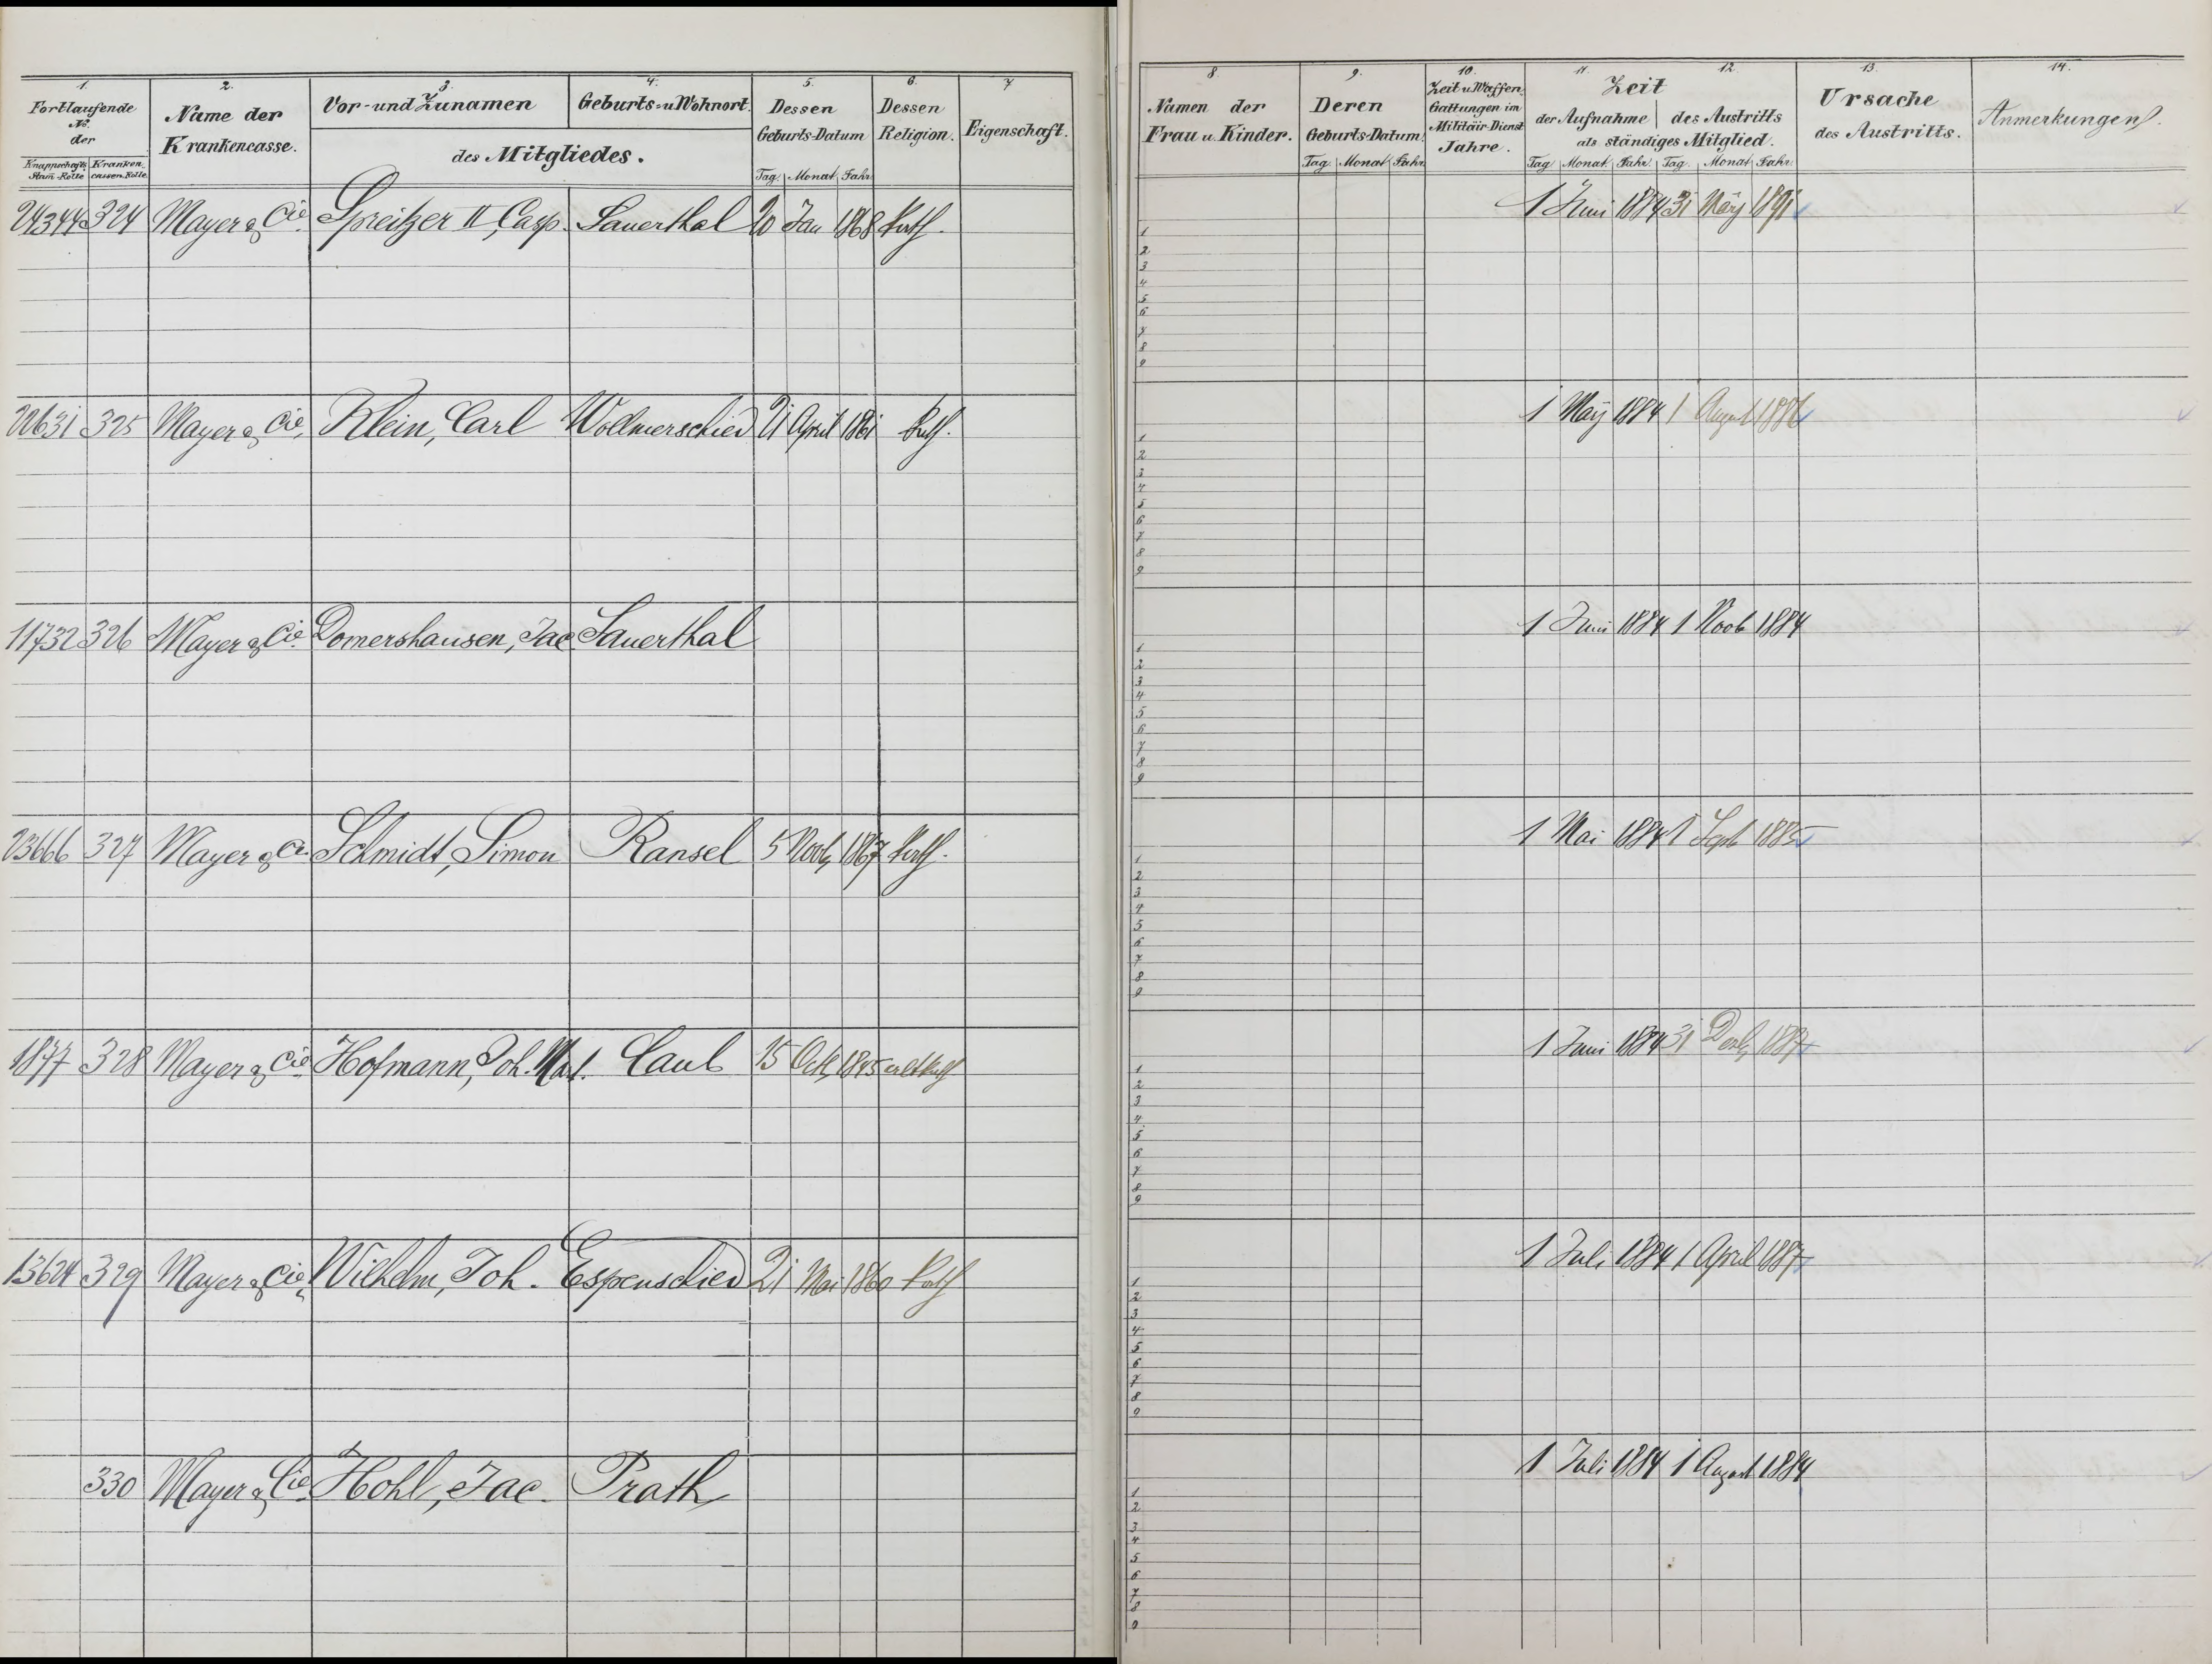 1. 2. 3. 4. 5. 6. 7
Fortlaufende No. der
Knappschafts Stam-Rolle
Kranken cassen-Rolle
Name der Krankencasse.
Vor- und Zunamen
Geburts- u. Wohnort.
des Mitgliedes.
Dessen Geburts-Datum
Tag. Monat. Jahr.
Dessen Religion.
Eigenschaft.
24344 324 Mayer & Cie. Spreitzer II, Casp. Sauerthal 20 Jan 1868 kath.
22631 325 Mayer & Cie. Klein, Carl Wollmerschied 21 April 1861 kath.
11732 326 Mayer & Cie. Domershausen, Jac. Sauerthal
23666 327 Mayer & Cie Schmidt, Simon Ransel 5 Novb. 1867 kath.
1877 328 Mayer & Cie. Hofmann, Joh. Caub 15 Octb. 1845 altkath.
13624 329 Mayer & Cie. Wilhelm, Joh. Espenschied 21 Mai 1860 kath
330 Mayer & Cie. Hohl, Jac. Prath
8. 9. 10. 11. 12. 13. 14.
Namen der Frau u. Kinder.
Deren Geburts-Datum.
Tag. Monat. Jahr.
Zeit u. Waffen. Gattungen im Militair-Dienst Jahre.
Zeit
der Aufnahme des Austritts
als ständiges Mitglied.
Tag. Monat. Jahr. Tag. Monat. Jahr.
Ursache des Austritts.
Anmerkungen.
1 Juni 1884 31 März 1891
1
2
3
4
5
6
7
8
9
1 May 1884 1 August 1886
1
2
3
4
5
6
7
8
9
1 Juni 1884 1 Novb 1884
1
2
3
4
5
6
7
8
9
1 Mai 1884 1 Septb 1885
1
2
3
4
5
6
7
8
9
1 Juni 1884 31 Decb. 1887
1
2
3
4
5
6
7
8
9
1 Juli 1884 1 April 1887
1
2
3
4
5
6
7
8
9
1 Juli 1884 1 August 1884
1
2
3
4
5
6
7
8
9